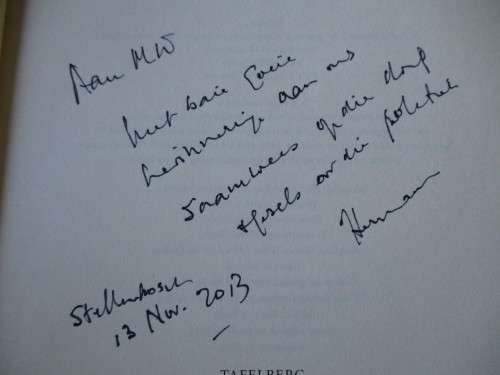 Aan MW
Met baie goeie
herinneringe aan ons
saamwees op die dorp
gesels oor die politiek
Herman
Stellenbosch
13 Nov. 2013
TAFELBERG